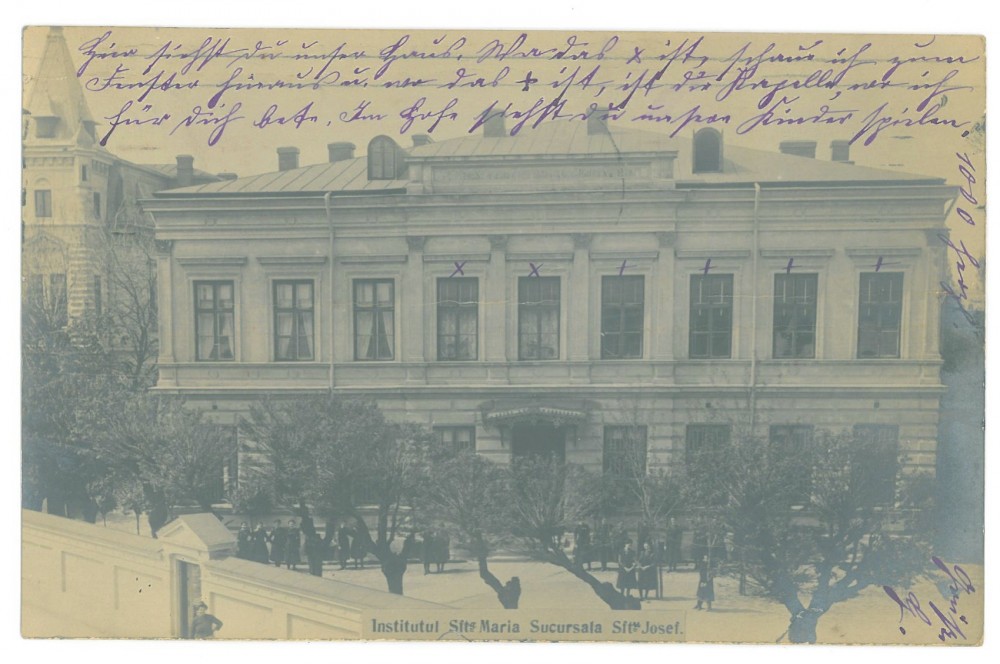 Hier siehst du unser Haus. Wo das x ist, schau ich zum
Fenster hinaus u. wo das + ist, ist die Kapelle, wo ich
für dich bete. Im Hofe siehst du unsere Kinder spielen.
1000 herzl.
Grüße
Institutul Sfta Maria Sucursala Sftu Josef.